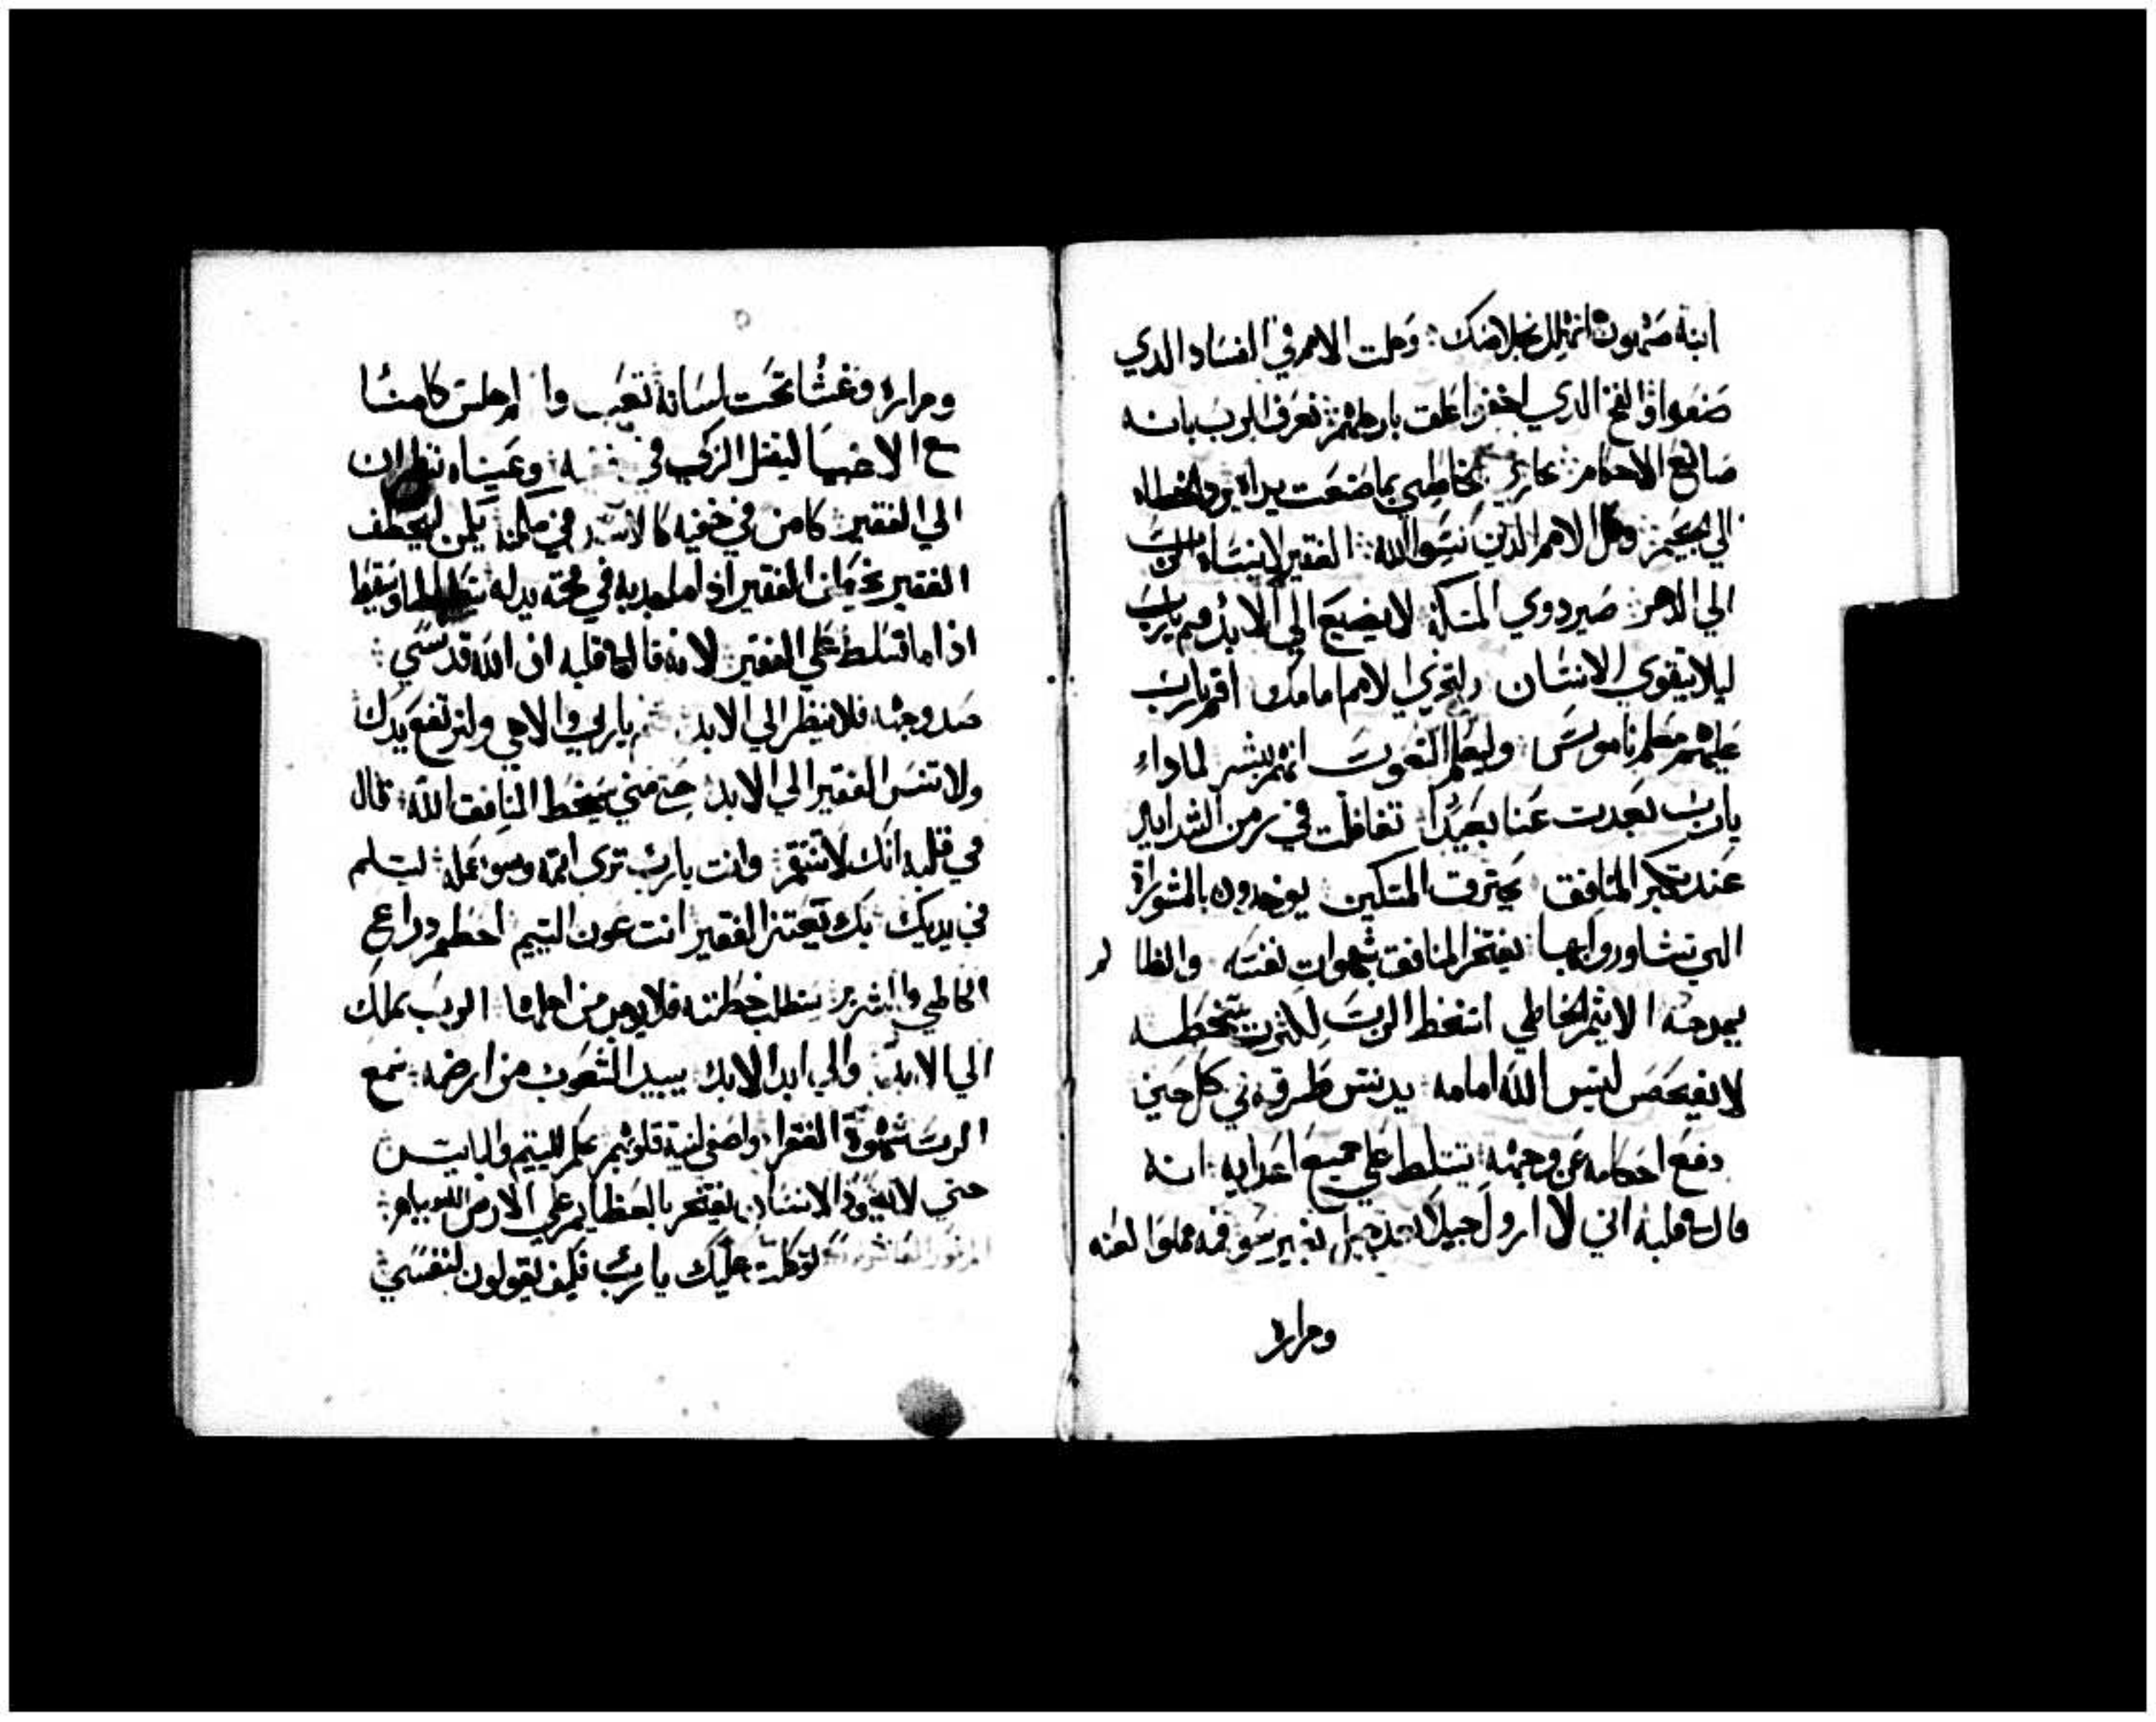 ابنة صهيون اتهلل بخلاصك وحلت الامم في الفساد الدي
صنعوا والفخ الدي اخفوا علقت بارجلهم نعرف الرب بانه
صانع الاحكام الخاطي بما صنعت يداه يرد الخطاه
الي الجحيم وكل الامم الدين نسوا الله الفقير لا ينساه الرب
الي الدهر صبر دوي المسكنة لا يضيع الي الابد قم يارب
ليلا يقوي الانسان ولتجزي الامم امامك اقم يارب
عليهم معلم ناموس وليعلم الشعوب انهم بشر لمادا
يارب بعدت عنا بعيدا تغافلت في زمن الشدايد
عند تكبر المنافق يحترق المسكين يوخدون بالمشوراة
التي تشاوروا بها يفتخر المنافق بشهوات نفسه والظالم
يمدحه الاثيم الخاطي اسخط الرب لكثرت سخطه
لا يفحص ليس الله امامه يدنس طرقه في كل حين
دفع احكامه عن وجهه يتسلط علي جميع اعدايه انه
قال في قلبه اني لا ازول جيلا بعد جيل بغير سو فمه مملوا لعنه
ومراره
ومراره وغشا تحت لسانه تعب وا جلس كامنا
مع الاغنيا ليقتل الزكي في وعيناه تنظران
الي الفقير كامن في خفيه كالاسد في مكمنه يكمن ليخطف
الفقير يخطف الفقير ادا ما يجدبه في فخه يدله ويسقط
ادا ما تسلط علي الفقير لانه قال في قلبه ان الله قد نسي
صد وجهه فلا ينظر الي الابد قم يا ربي والاهي ولترتفع يدك
ولا تنس الفقير الي الابد حتي متي يسخط المنافق الله قال
في قلبه انك لا تنتقم وانت يارب تري اثمه وسو عمله ليسلم
في يديك بك يعتز الفقير انت عون اليتيم احطم دراع
الخاطي والشرير يطلب خطيته فلا يوجد من اجلها الرب يملك
الي الابد والي ابد الابد يبيد الشعوب من ارضه سمع
الرب شهوة الفقرا واصغى لنية قلوبهم حكم لليتيم والبايس
حتي لا يعود الانسان يفتخر بالعظايم علي الارض الليلوياه
المزمور العاشر توكلت عليك يا رب فكيف تقولون لنفسي